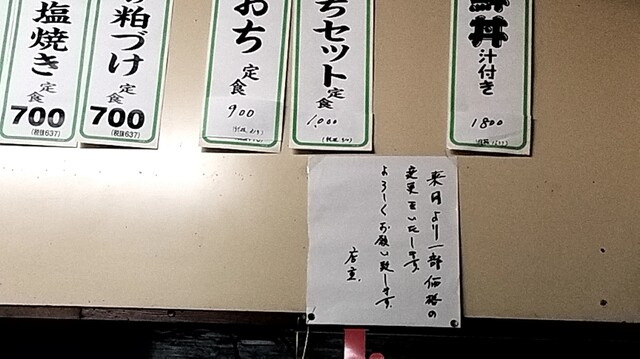 丼汁付き
1800
ちセット定食
1,000
おち定食
900
粕づけ定食
700
(税抜637)
塩焼き定食
700
(税抜637)
来月より一部価格の
変更をいたします。
よろしくお願い致します。
店主